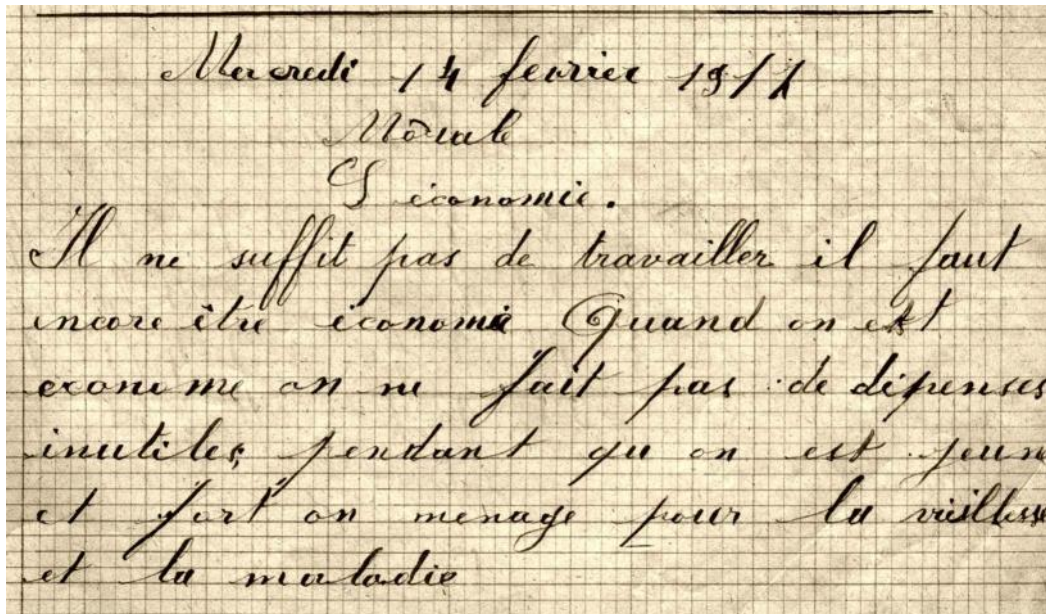 Mercredi 14 fevrier 1911
Morale
L économie.
Il ne suffit pas de travailler il faut
encore être économe Quand on est
econome on ne fait pas de dépenses
inutiles pendant qu on est jeune
et fort on menage pour la vieillesse
et la maladie